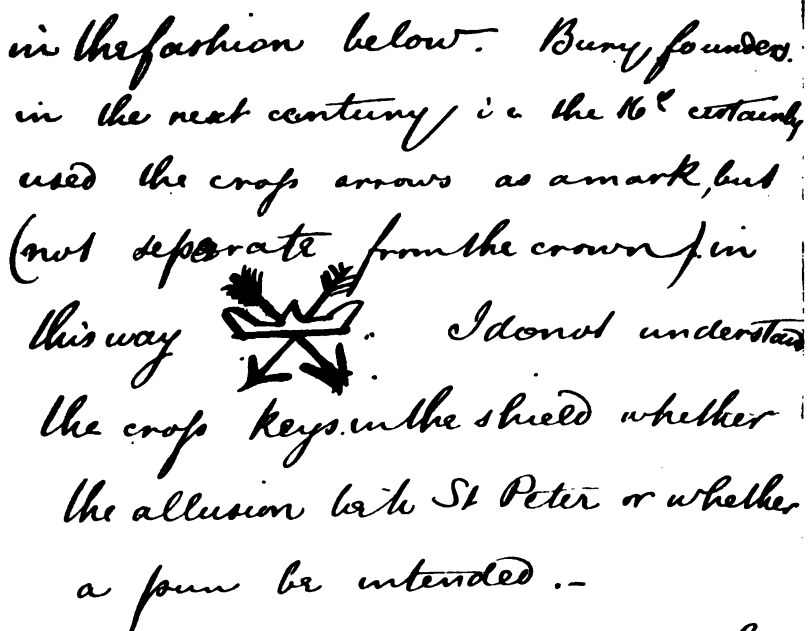 in the fashion below. Bury founders.
in the next century i e the 16th certainly
used the cross arrows as a mark, but
(not separate from the crown) in
this way . I do not understand
the cross keys in the shield whether
the allusion be to St Peter or whether
a pun be intended . -